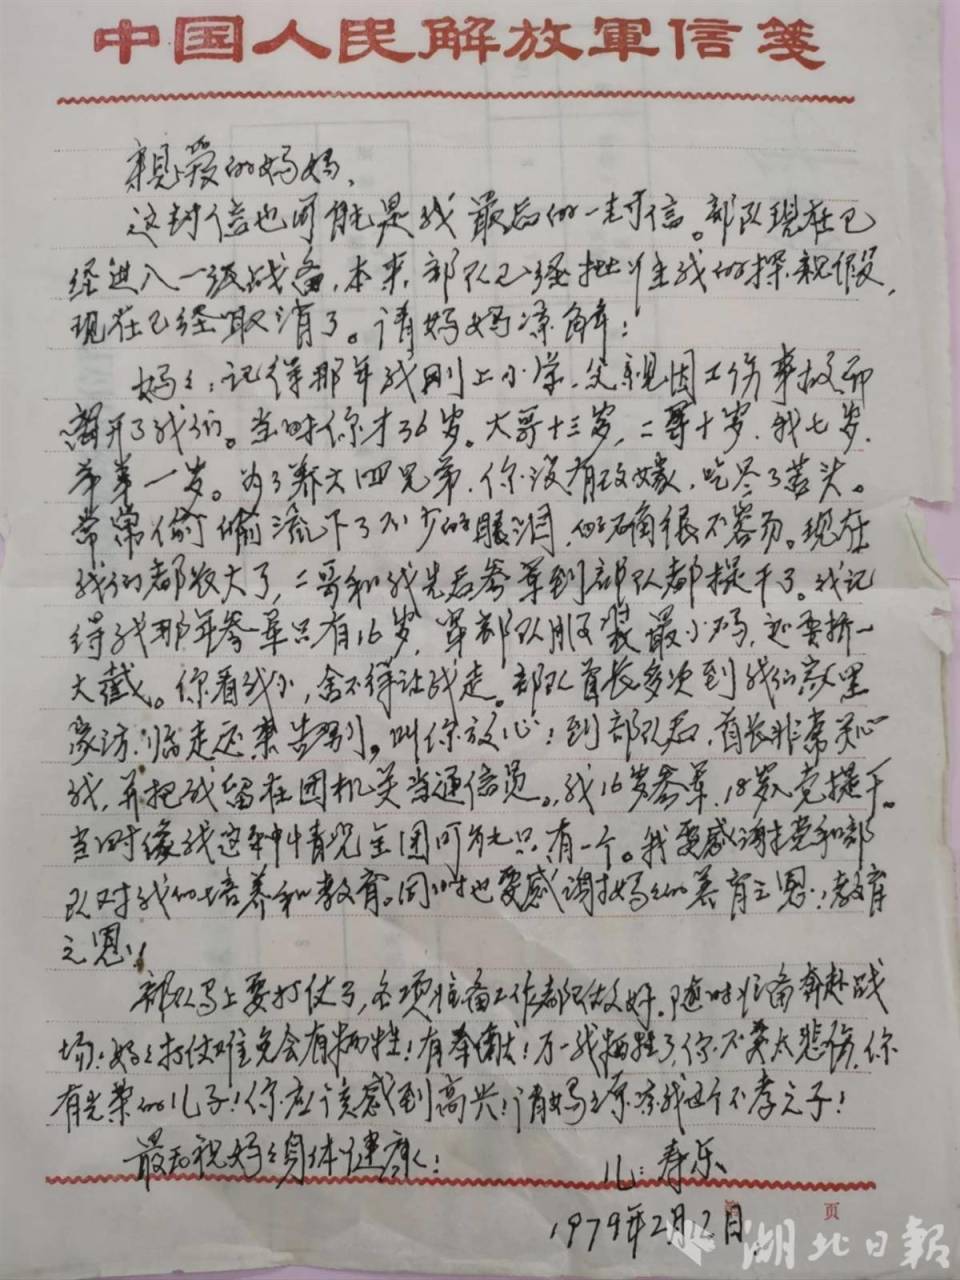 中国人民解放軍信箋
亲爱的妈妈、
这封信也可能是我最后的一封信。部队现在已
经进入一级战备,本来部队已经批准我的探亲假,
现在已经取消了。请妈妈凉解:
妈々:记得那年我刚上小学、父亲因工伤事故而
离开了我们。当时你才36岁。大哥十三岁,二哥十岁、我七岁、
弟弟一岁。为了养大四兄弟、你没有改嫁,吃尽了苦头。
常常偷偷流下了不少的眼泪,的确很不容易。现在
我们都长大了,二哥和我先后参军到部队都提干了。我记
得我那年参军只有16岁,穿部队服装最小码,还要折一
大截。你看我小,舍不得让我走。部队首长多次到我们家里
家访、临走还来告别。叫你放心!到部队后,首长非常关心
我,并把我留在团机关当通信员。我16岁参军、18岁入党提干。
当时像我这种情况全团可能只有一个。我要感谢党和部
队对我的培养和教育。同时也要感谢妈々的养育之恩!教育
之恩!
部队马上要打仗了,各项准备工作都已做好。随时准备奔赴战
场!妈々打仗难免会有牺牲!有奉献!万一我牺牲了,你不要太悲伤,你
有光荣的儿子!你应该感到高兴!请妈々原凉我这个不孝之子!
最后祝妈々身体健康!
儿:寿乐
1979年2月2日
第 页
湖北日報